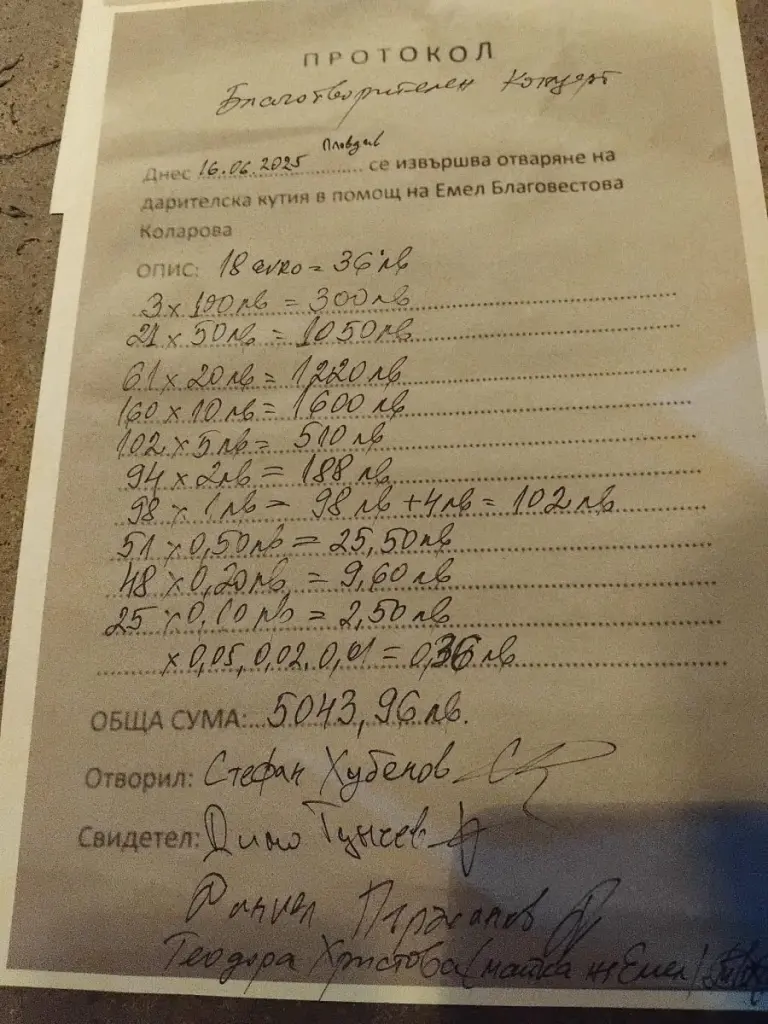 ПРОТОКОЛ
Благотворителен Концерт
Пловдив
Днес 16.06.2025 се извършва отваряне на
дарителска кутия в помощ на Емел Благовестова
Коларова
ОПИС: 18 evro = 36 лв
3 x 100лв = 300лв
21 x 50лв = 1050лв
61 x 20лв = 1220лв
160 x 10лв = 1600лв
102 x 5лв = 510лв
94 x 2лв = 188лв
98 x 1лв = 98лв + 4лв = 102лв
51 x 0,50лв = 25,50лв
48 x 0,20лв = 9,60лв
25 x 0,10лв = 2,50лв
x 0,05, 0,02, 0,01 = 0,36лв
ОБЩА СУМА: 5043,96лв.
Отворил: Стефан Хубенов
Свидетел: Димо Гунчев
Теодора Христова (майка на Емел)